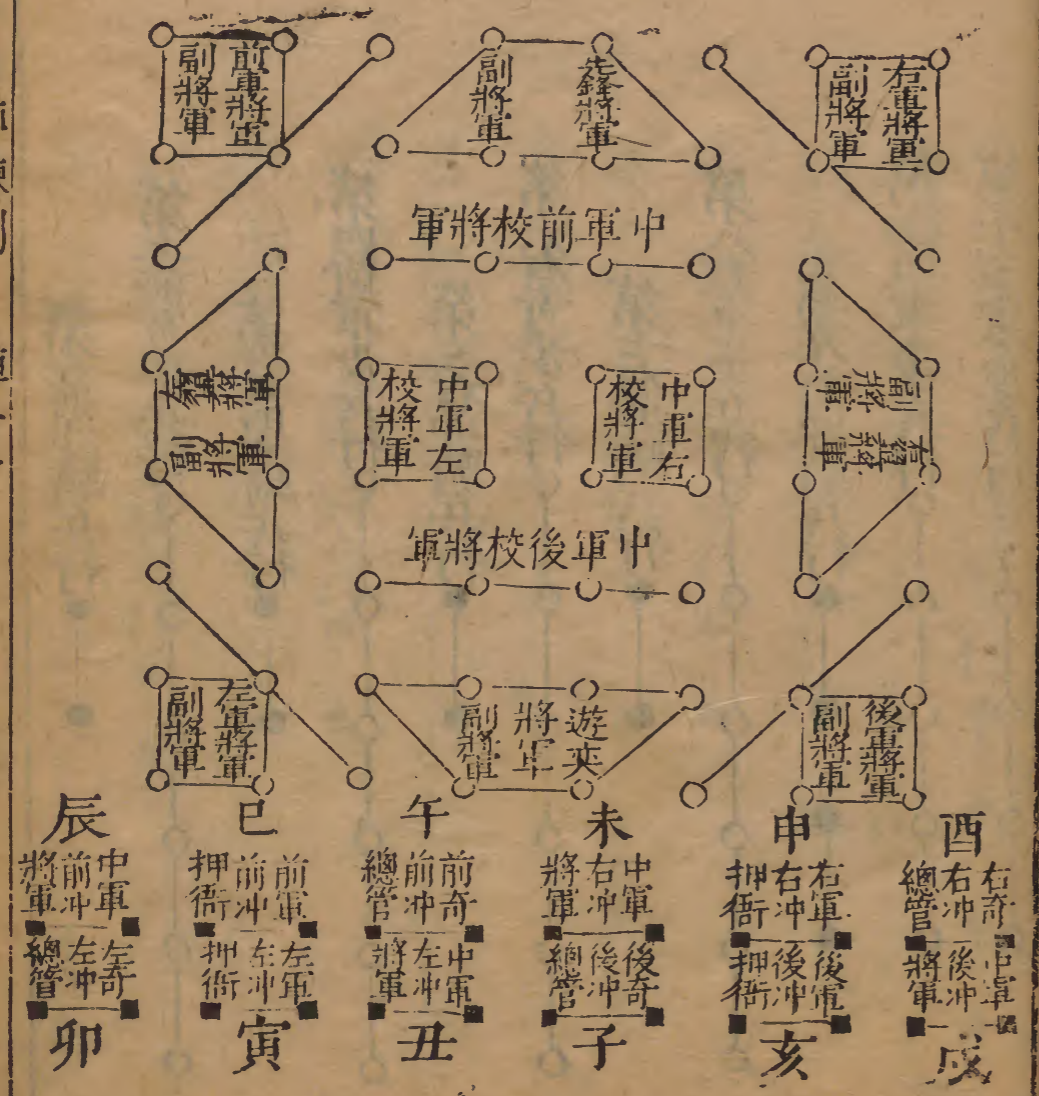 右軍將軍
副將軍
先鋒將軍
副將軍
前軍將軍
副將軍
中軍前校將軍
副將軍
右翼將軍
中軍右
校將軍
中軍左
校將軍
左翼將軍
副將軍
中軍後校將軍
後軍將軍
副將軍
遊奕
將軍
副將軍
左軍將軍
副將軍
酉
右奇
右冲
總管
中軍
後冲
將軍
戌
申
右軍
右冲
押衙
後軍
後冲
押衙
亥
未
中軍
右冲
將軍
後奇
後冲
總管
子
午
前奇
前冲
總管
中軍
左冲
將軍
丑
巳
前軍
前冲
押衙
左軍
左冲
押衙
寅
辰
中軍
前冲
將軍
左奇
左冲
總管
卯